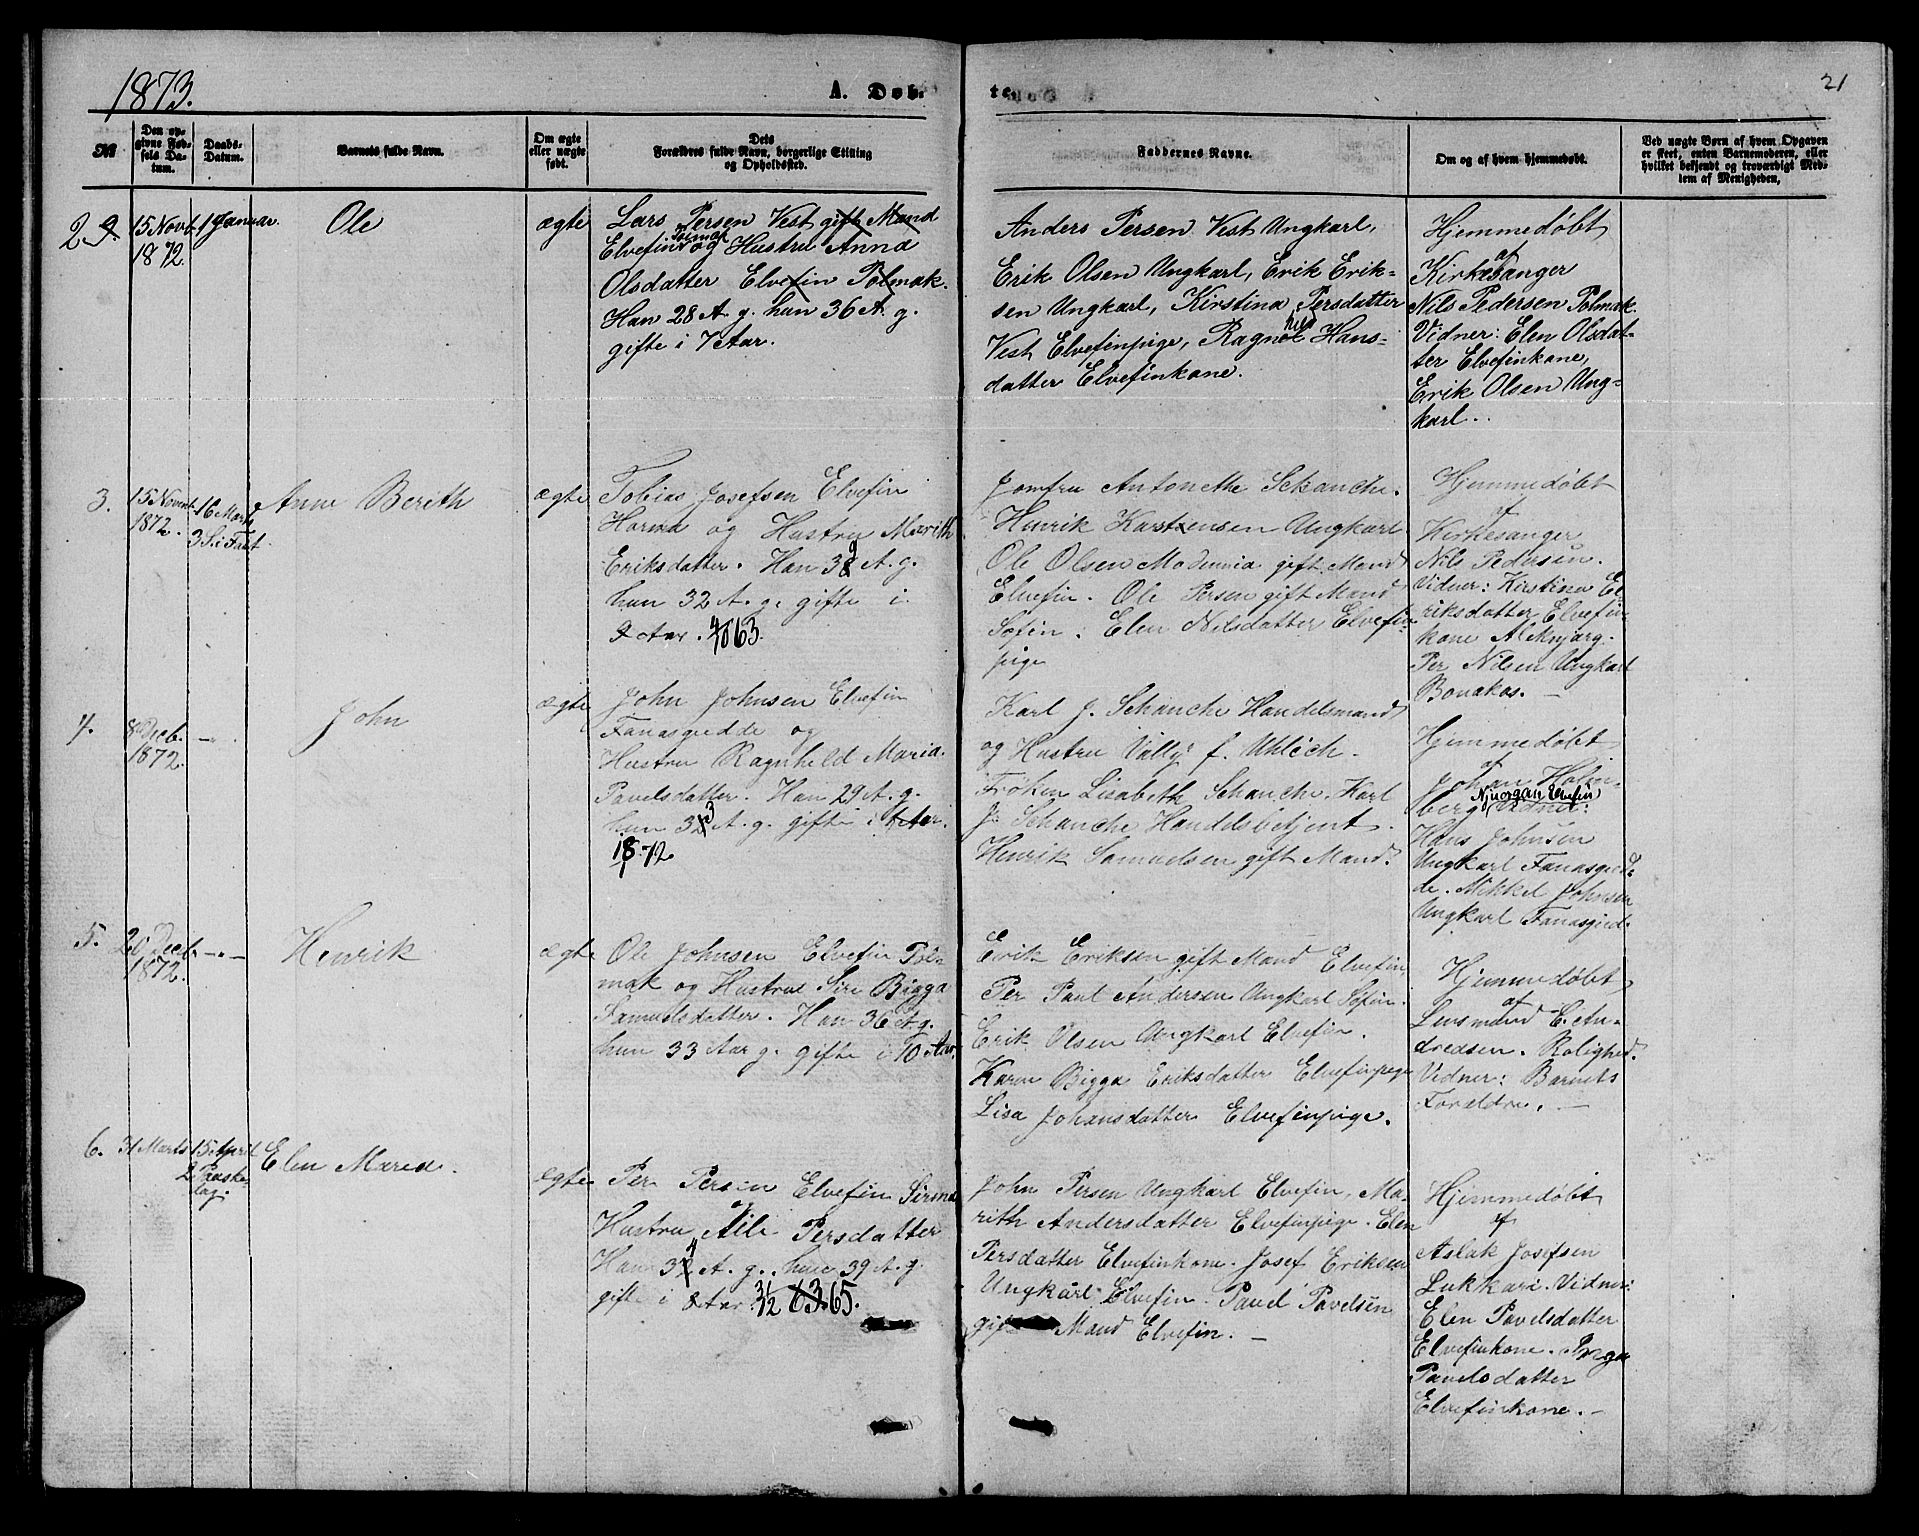 1873.
A. Døb-
te.
21
№
Den op-
givne Fød-
sels Da-
tum.
Daabs-
Datum.
Barnets fulde Navn.
Om ægte
eller uægte
født.
Dets
Forældres fulde Navn, borgerlige Stilling
og Opholdssted.
Faddernes Navne.
Om og af hvem hjemmedøbt.
Ved uægte Børn af hvem Opgaven
er skeet, enten Barnemoderen, eller
hvilket bekjendt og troværdigt Med-
lem af Menigheden.
2.
15 Novb.
1872.
1 Januar.
Ole
ægte
Lars Persen Vest gift Mand
Elvefin Polmak og Hustru Anna
Olsdatter Elvefin Polmak.
Han 28 A. g. hun 36 A. g.
gifte i 7 Aar.
Anders Persen Vest Ungkarl,
Erik Olsen Ungkarl, Erik Erik-
sen Ungkarl, Kirstina Persdatter
Vest Elvefinpige, Ragnhild Hans-
datter Elvefinkone.
Hjemmedøbt
af
Kirkesanger
Nils Pedersen Polmak.
Vidner: Elen Olsdat-
ter Elvefinkone,
Erik Olsen Ung-
karl.
3.
15 Novbr
1872.
16 Marts
3 S. i Fast
Anne Berith
ægte
Tobias Josefsen Elvefin
Horma og Hustru Marith
Eriksdatter. Han 39 A. g.
hun 32 A. g. gifte i
9 Aar. 4/10 63.
Jomfru Antonette Schanche.
Henrik Karstensen Ungkarl
Ole Olsen gift Mand
Elvefin. Ole Persen gift Mand
Søfin. Elen Nilsdatter Elvefin-
pige
Hjemmedøbt
af
Kirkesanger
Nils Pedersen.
Vidner: Kirstina E-
riksdatter Elvefin-
kone Aleknjarg.
Per Nilsen Ungkarl
Bonakas. —
4.
8 Decb.
1872.
— " —
John
ægte
John Johnsen Elvefin
Fanasgiedde og
Hustru Ragnhild Maria
Pavelsdatter. Han 29 A. g.
hun 33 A. g. gifte i 1 Aar.
1872
Karl J. Schanche Handelsmand
og Hustru Vally f. Uhlich.
Frøken Lisabeth Schanche. Karl
J. Schanche Handelsbetjent.
Henrik Samuelsen gift Mand.
Hjemmedøbt
af
Johan Holm-
berg Njuorgan Elvefin Vidner:
Hans Johnsen
Ungkarl Fanasgied-
de. Mikkel Johnsen
Ungkarl Fanasgied.
5.
20 Decb.
1872.
— " —
Henrik
ægte
Ole Johnsen Elvefin Pol-
mak og Hustru Siri Bigga
Samuelsdatter. Han 36 A. g.
hun 33 Aar g. gifte i 10 Aar.
Erik Eriksen gift Mand Elvefin,
Per Paul Andersen Ungkarl Søfin.
Erik Olsen Ungkarl Elvefin.
Karen Bigga Eriksdatter Elvefinpige
Lisa Johansdatter Elvefinpige.
Hjemmedøbt
af
Lensmand E. An-
dredsen. Rolighed.
Vidner: Barnets
Forældre. —
6.
31 Marts
15 April
2 Paaske-
dag.
Elen Maria.
ægte
Per Persen Elvefin Sirma
Hustru Aili Persdatter
Han 34 A. g. hun 39 A. g.
gifte i 8 Aar. 3/12 63 65.
John Persen Ungkarl Elvefin, Ma-
rith Andersdatter Elvefinpige. Elen
Persdatter Elvefinkone. Josef Eriksen
Ungkarl Elvefin. Pavel Pavelsen
gift Mand Elvefin. —
Hjemmedøbt
af
Aslak Josefsen
Lukkari. Vidner:
Elen Pavelsdatter
Elvefinkone.
Pavelsdatter
Elvefinkone. —